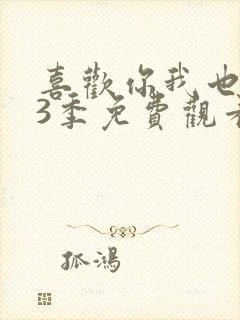 喜歡你我也
3季免費觀看
孤鴻